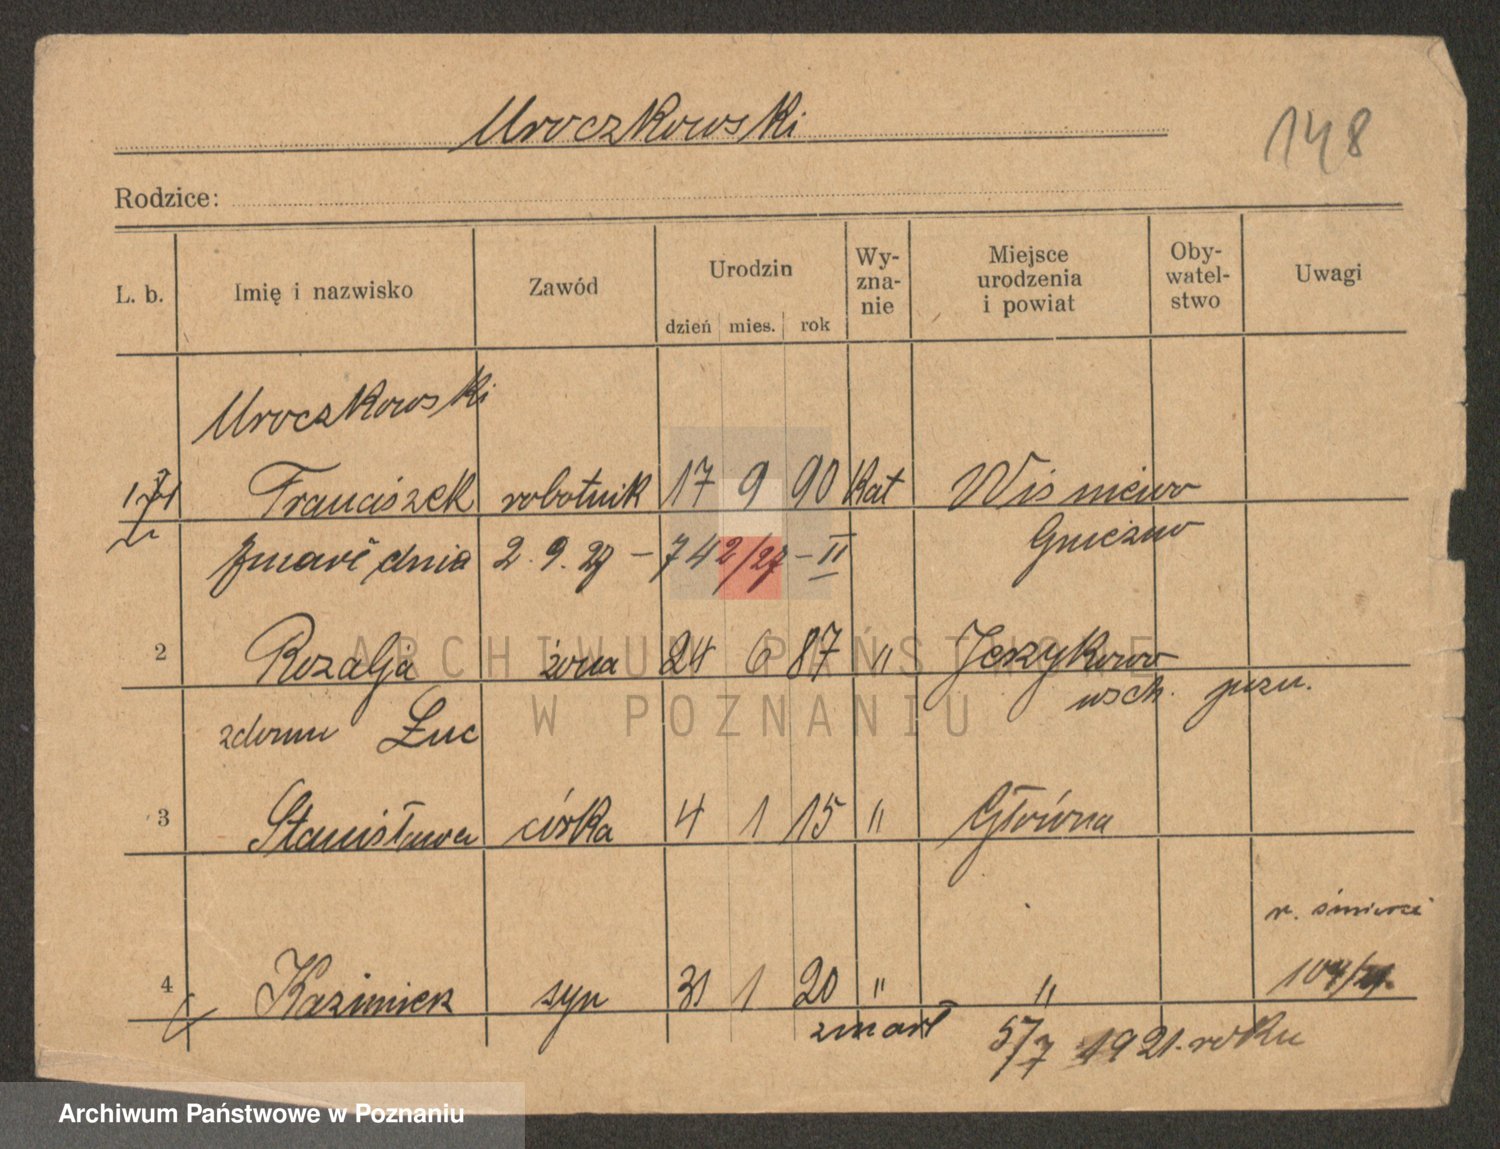 Mroczkowski
148
Rodzice:
L. b. Imię i nazwisko Zawód Urodzin Wy-zna-nie Miejsce urodzenia i powiat Oby-watel-stwo Uwagi
dzień mies. rok
Mroczkowski
Franciszek robotnik 17 9 90 Kat Wiśniewo
Gniezno
Zmarł dnia 2. 9. 27 – 742/27 – II
2 Rozalja żona 24 6 87 " Jerzykowo
wsch. pozn.
zdomu Łuc
3 Stanisława córka 4 1 15 " Główna
n. śmierci
4 Kazimierz syn 31 1 20 " "
zmarł 5/7 1921. roku
ARCHIWUM PAŃSTWOWE
W POZNANIU
Archiwum Państwowe w Poznaniu